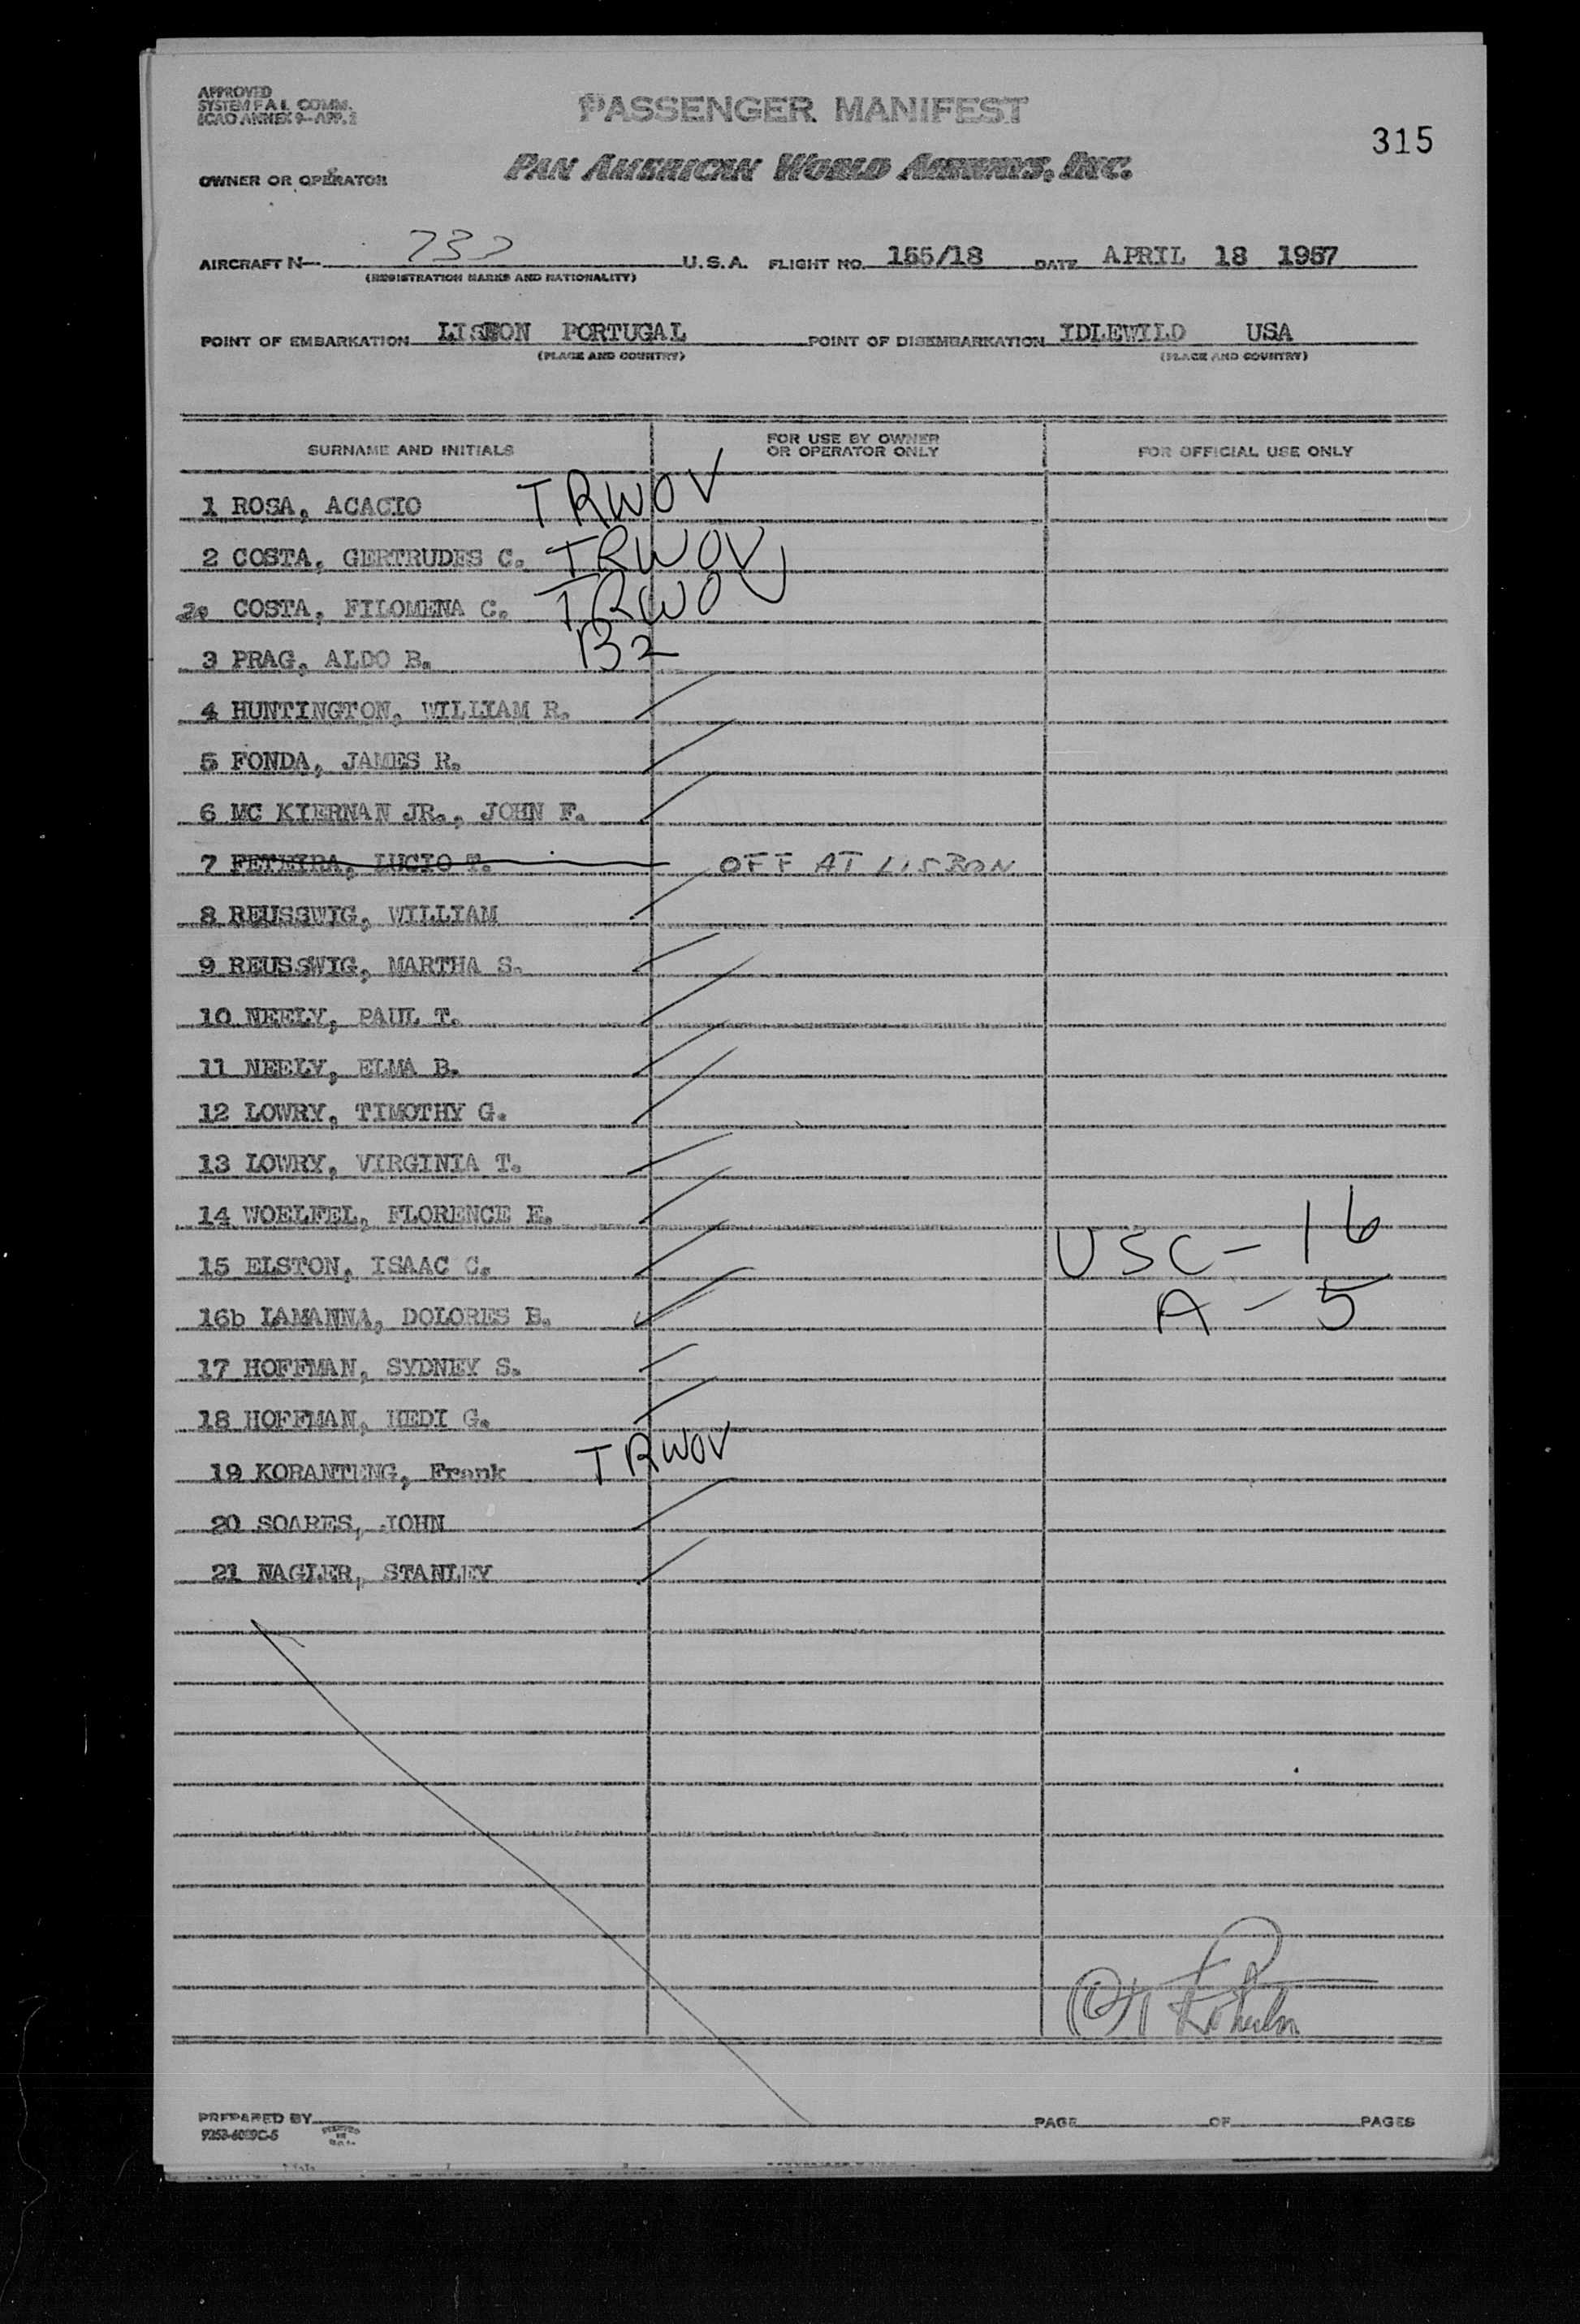 APPROVED
SYSTEM F.A.L. COMM.
ICAO ANNEX 9-APP. 2
PASSENGER MANIFEST
315
PAN AMERICAN WORLD AIRWAYS, INC.
OWNER OR OPERATOR
AIRCRAFT N- 737 U.S.A. FLIGHT NO. 155/18 DATE APRIL 18 1957
(REGISTRATION MARKS AND NATIONALITY)
POINT OF EMBARKATION LISBON PORTUGAL POINT OF DISEMBARKATION IDLEWILD USA
(PLACE AND COUNTRY) (PLACE AND COUNTRY)
SURNAME AND INITIALS FOR USE BY OWNER OR OPERATOR ONLY FOR OFFICIAL USE ONLY
1 ROSA, ACACIO TRWOV
2 COSTA, GERTRUDES C. TRWOV
2a COSTA, FILOMENA C. TRWOV
3 PRAG, ALDO B. B2
4 HUNTINGTON, WILLIAM R.
5 FONDA, JAMES R.
6 MC KIERNAN JR., JOHN F.
7 LUCIO T. OFF AT LISBON
8 REUSSWIG, WILLIAM
9 REUSSWIG, MARTHA S.
10 NEELY, PAUL T.
11 NEELY, ELMA B.
12 LOWRY, TIMOTHY G.
13 LOWRY, VIRGINIA T.
14 WOELFEL, FLORENCE E.
15 ELSTON, ISAAC C. USC - 16
16b LAMANNA, DOLORES E. A - 5
17 HOFFMAN, SYDNEY S.
18 HOFFMAN, HEDI G.
19 KORANTENG, Frank TRWOV
20 SOARES, JOHN
21 NAGLER, STANLEY
PREPARED BY PAGE OF PAGES
9253-6009C-5 PRINTED IN U.S.A.